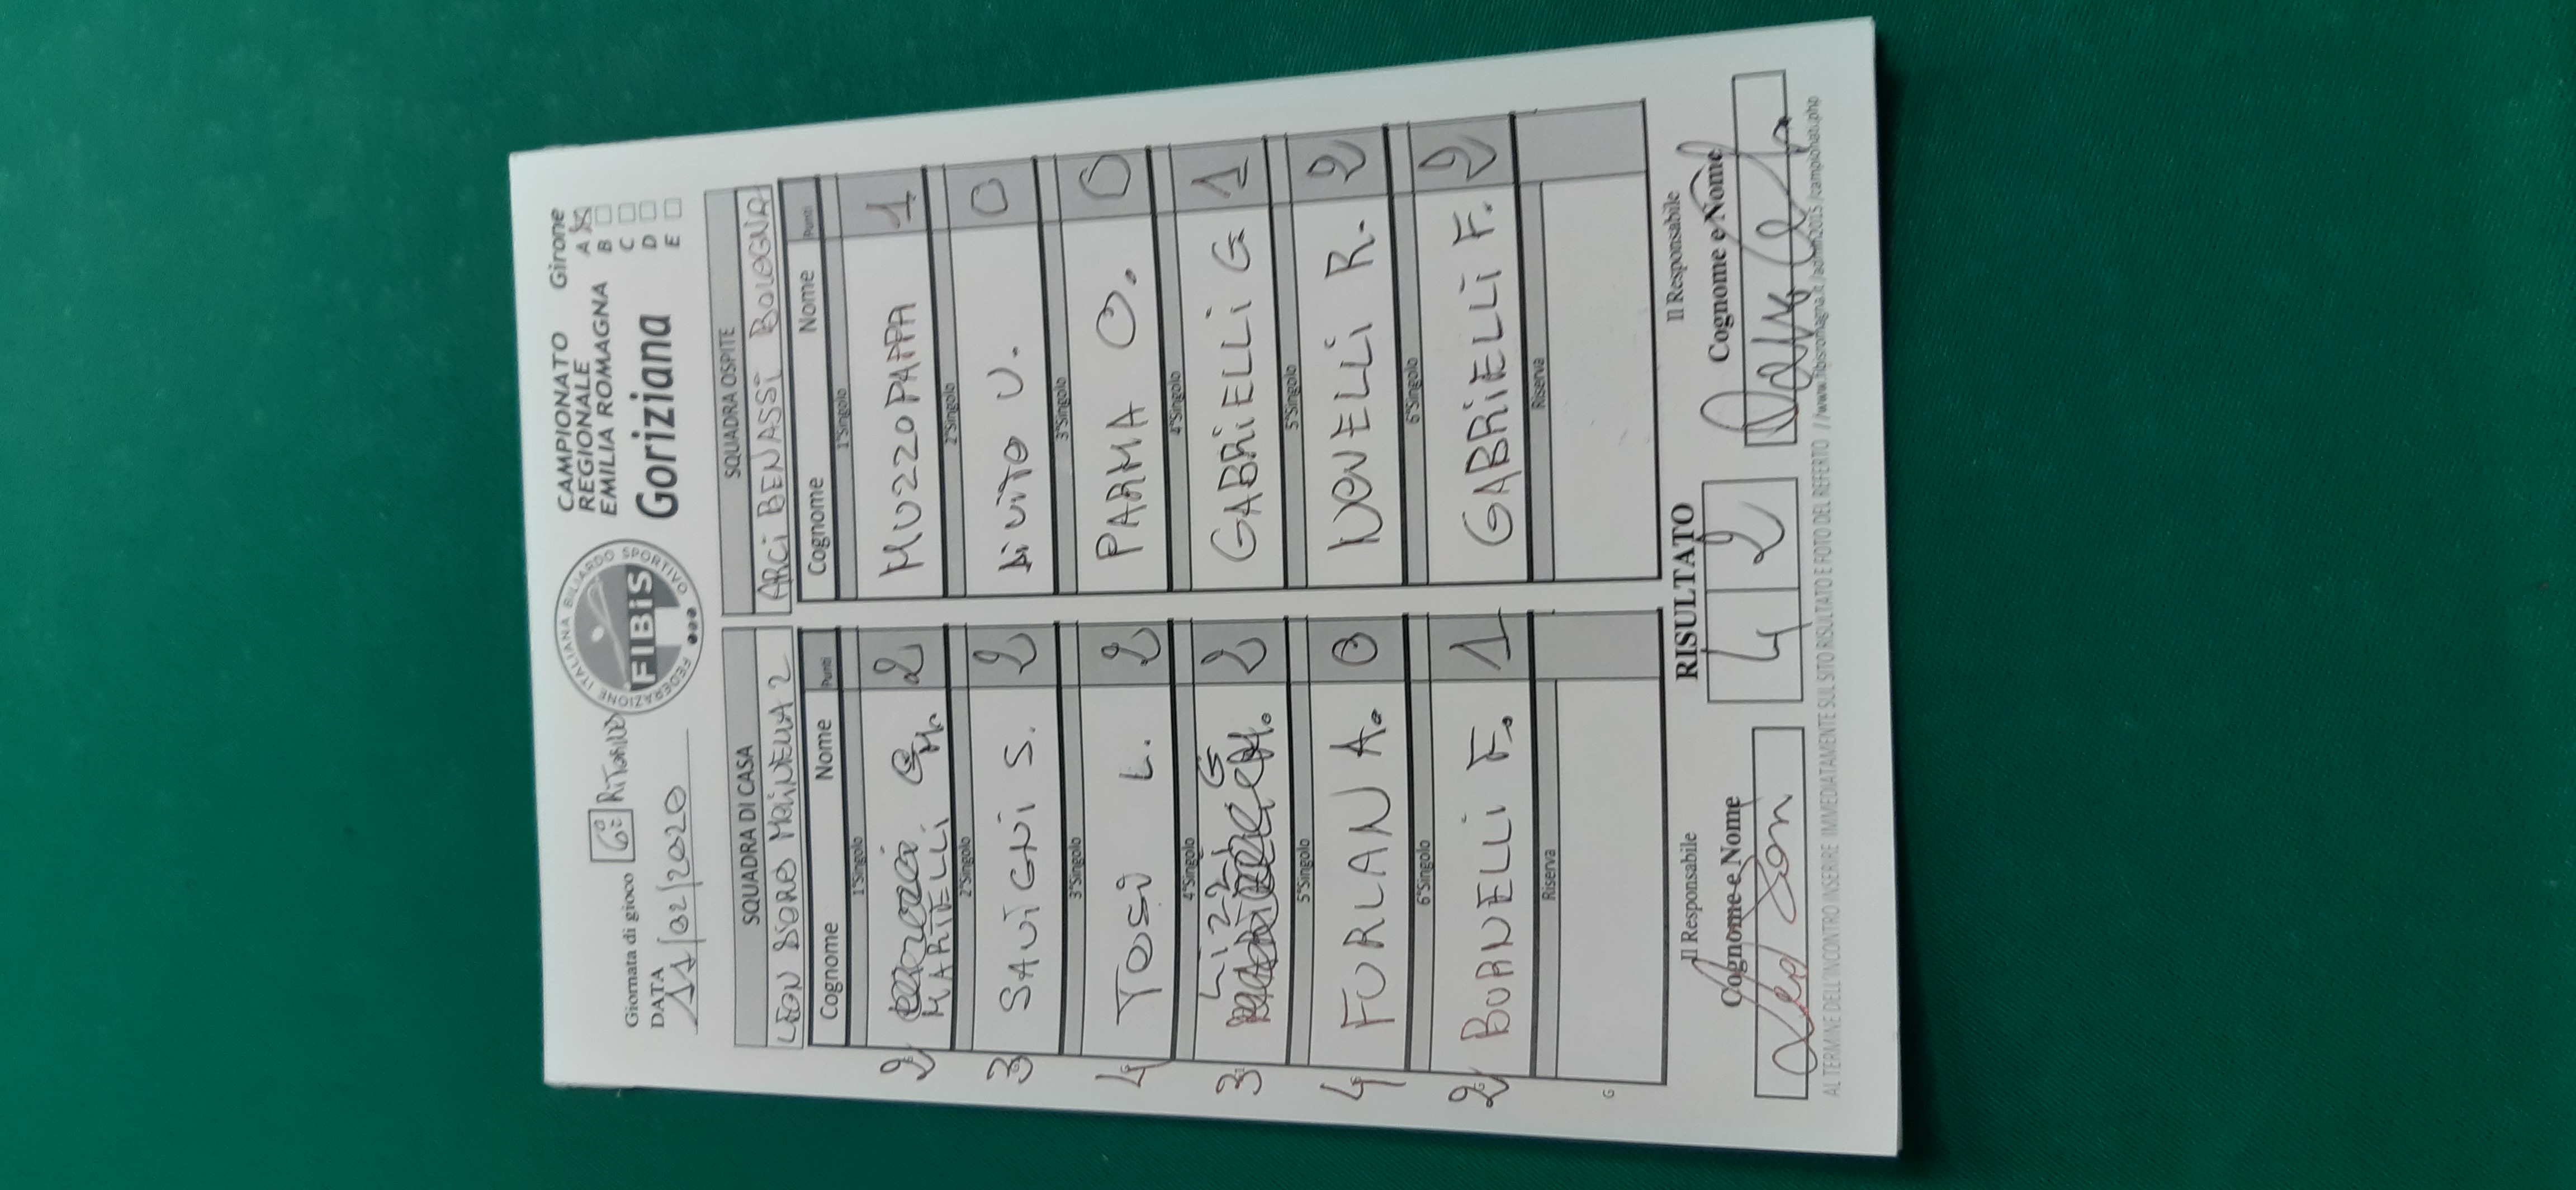 Giornata di gioco 6° RITORNO
DATA
11/02/2020
FEDERAZIONE ITALIANA BILIARDO SPORTIVO
FIBiS
CAMPIONATO
REGIONALE
EMILIA ROMAGNA
Goriziana
Girone
A
B
C
D
E
SQUADRA DI CASA
2
Cognome Nome Punti
1°Singolo
2 MARTELLI G.M. 2
2°Singolo
3 SAVIGNI S. 2
3°Singolo
4 TOSI L. 2
4°Singolo
3 LIZZI G 2
5°Singolo
4 FURLAN A. 0
6°Singolo
2 BORNELLI F. 1
Riserva
G
SQUADRA OSPITE
ARCI BENASSI BOLOGNA
Cognome Nome Punti
1°Singolo
MUZZOPAPPA 1
2°Singolo
DI VITO V. 0
3°Singolo
PARMA O. 0
4°Singolo
GABRIELLI G 1
5°Singolo
NOVELLI R. 2
6°Singolo
GABRIELLI F. 2
Riserva
Il Responsabile
Cognome e Nome
RISULTATO
4 2
Il Responsabile
Cognome e Nome
AL TERMINE DELL'INCONTRO INSERIRE IMMEDIATAMENTE SUL SITO RISULTATO E FOTO DEL REFERTO //www.fibisromagna.it/admin2015/campionati.php